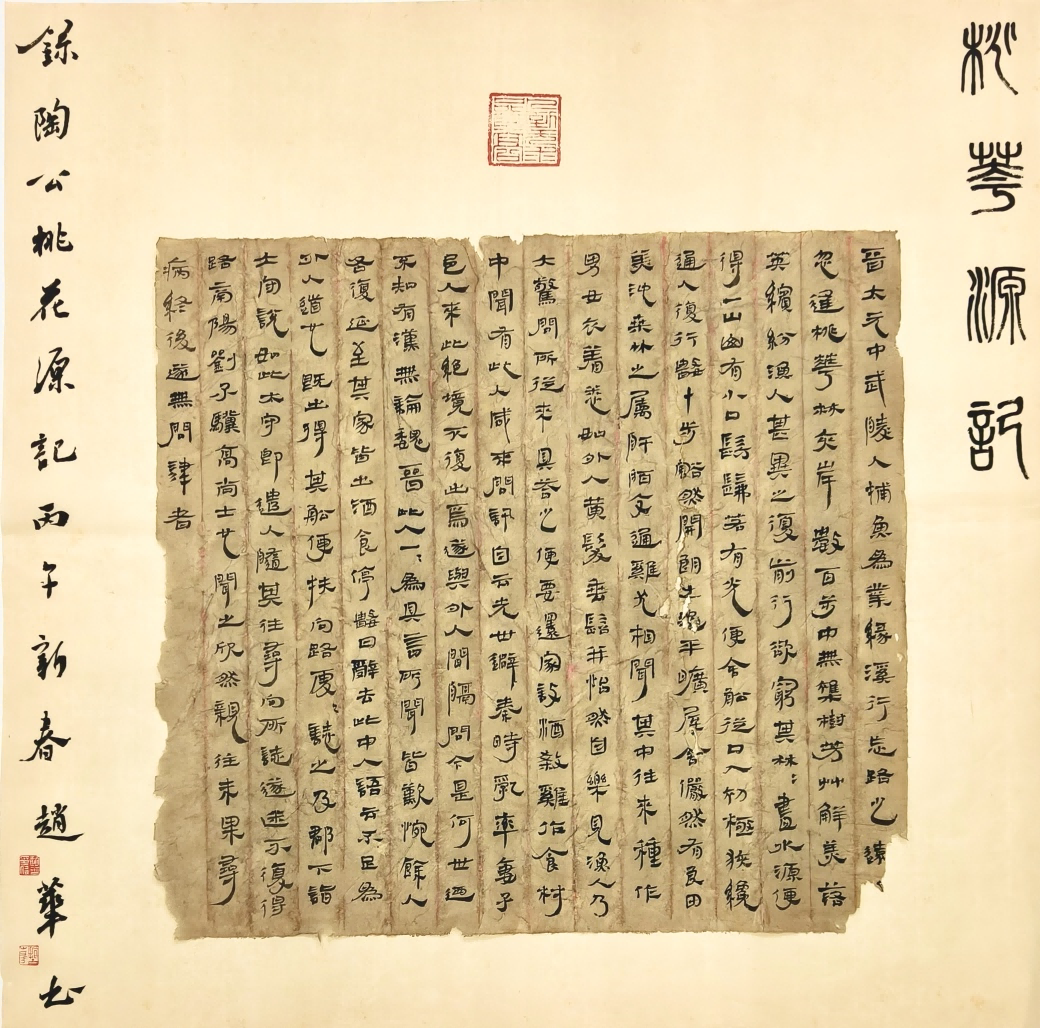 桃華源記
晉太元中武陵人捕魚為業緣溪行忘路之遠
忽逢桃華林夾岸數百步中無雜樹芳艸鮮美落
英繽紛漁人甚異之復前行欲窮其林〻盡水源便
得一山山有小口髣髴若有光便舍船從口入初極狹纔
通人復行數十步豁然開朗土地平曠屋舍儼然有良田
美池桑林之屬阡陌交通雞犬相聞其中往來種作
男女衣著悉如外人黃髮垂髫并怡然自樂見漁人乃
大驚問所從來具荅之便要還家設酒殺雞作食村
中聞有此人咸來問訊自云先世避秦時亂率妻子
邑人來此絕境不復出焉遂與外人間隔問今是何世迺
不知有漢無論魏晉此人一〻為具言所聞皆歎惋餘人
各復延至其家皆出酒食停數日辭去此中人語云不足為
外人道也既出得其船便扶向路處〻誌之及郡下詣
太守說如此太守即遣人隨其往尋向所誌遂迷不復得
路南陽劉子驥高尚士也聞之欣然親往未果尋
病終後遂無問津者
錄陶公桃花源記丙午新春趙華书